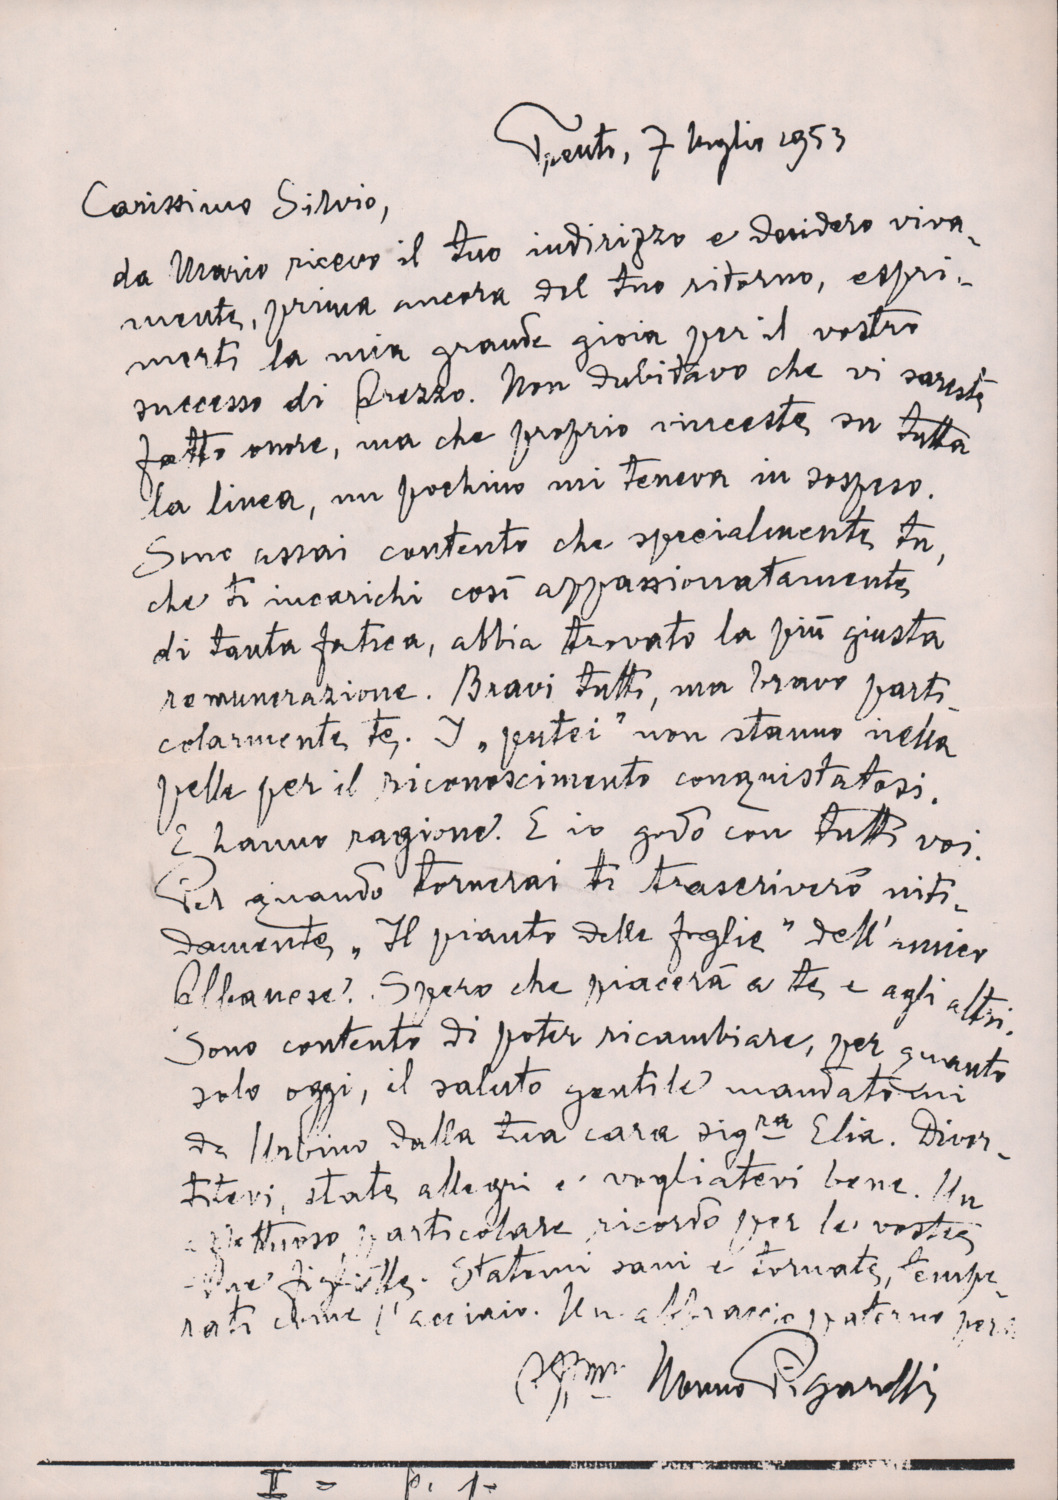 Trento, 7 luglio 1953
Carissimo Silvio,
da Mario ricevo il tuo indirizzo e desidero viva-
mente, prima ancora del tuo ritorno, espri-
merti la mia grande gioia per il vostro
successo di Arezzo. Non dubitavo che vi sareste
fatto onore, ma che proprio vinceste su tutta
la linea, un pochino mi teneva in sospeso.
Sono assai contento che specialmente tu,
che ti incarichi così appassionatamente
di tanta fatica, abbia trovato la più giusta
remunerazione. Bravi tutti, ma bravo parti-
colarmente te. I „putei” non stanno nella
pelle per il riconoscimento conquistatosi.
E hanno ragione. E io godo con tutti voi.
Per quando tornerai ti trascriverò niti-
damente „Il pianto delle foglie” dell'amico
Albanese. Spero che piacerà a te e agli altri.
Sono contento di poter ricambiare, per quanto
solo oggi, il saluto gentile mandatomi
da Urbino dalla tua cara sigra Elia. Diver-
titevi, state allegri e vogliatevi bene. Un
affettuoso particolare ricordo per le vostre
due figliette. Statemi sani e tornate, tempe-
rati come l'acciaio. Un abbraccio paterno per
Nonno Pigarelli
I = p. 1-